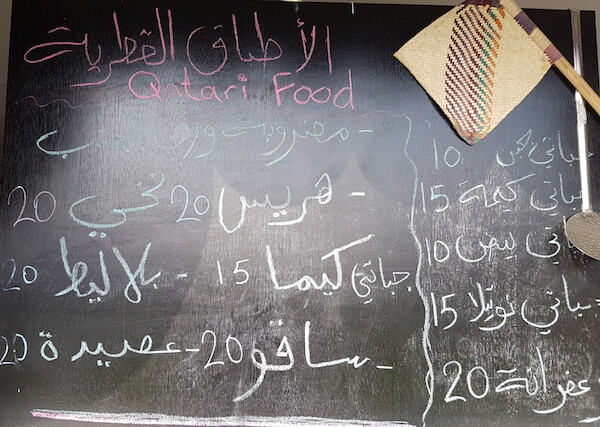 الأطباق القطرية
Qatari Food
- مضروبة ورق
- هريس 20 نخي 20
جباتي كيما 15 - بلاليط 20
- ساقو 20 - عصيدة 20
جباتي جبن 10
جباتي كيمة 15
جباتي بيض 10
جباتي نوتيلا 15
زعفرانة 20